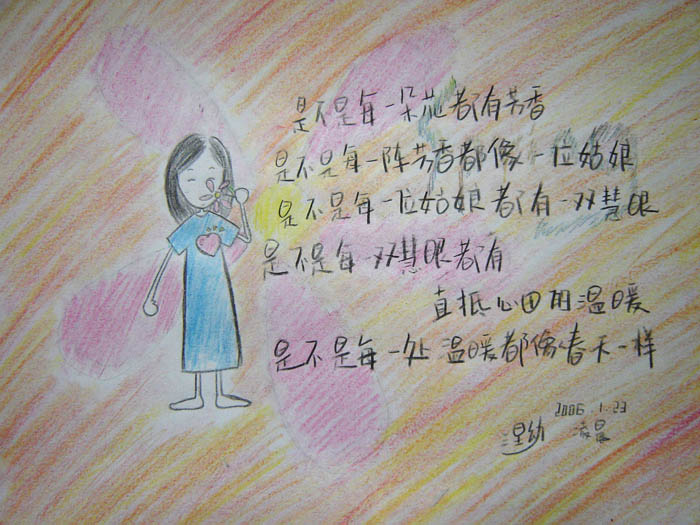 是不是每一朵花都有芳香
是不是每一阵芳香都像一位姑娘
是不是每一位姑娘都有一双慧眼
是不是每一双慧眼都有
直抵心田的温暖
是不是每一处温暖都像春天一样
2006.1.23
凌晨